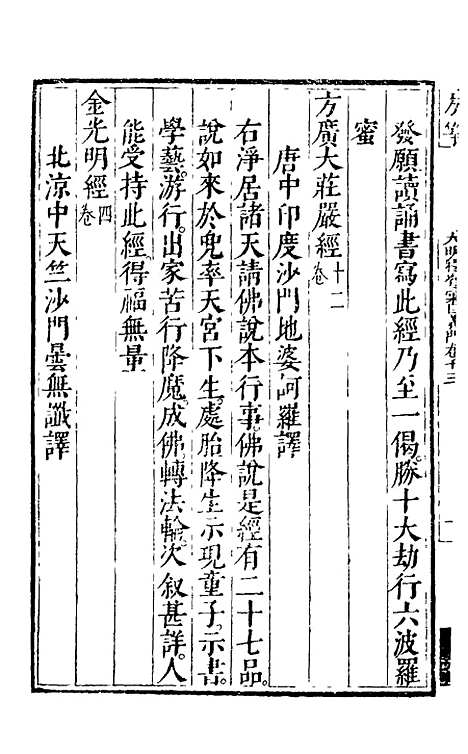 發願讀誦書寫此經乃至一偈。勝十大劫行六波羅
蜜
方廣大莊嚴經十二卷
唐中印度沙門地婆訶羅譯
右淨居諸天請佛說本行事。佛說是經有二十七品。
說如來於兜率天宮下生。處胎降生示現童子。示書。
學藝。游行。出家苦行降魔。成佛。轉法輪。次敘甚詳。人
能受持此經。得福無量
金光明經四卷
北涼中天竺沙門曇無讖譯